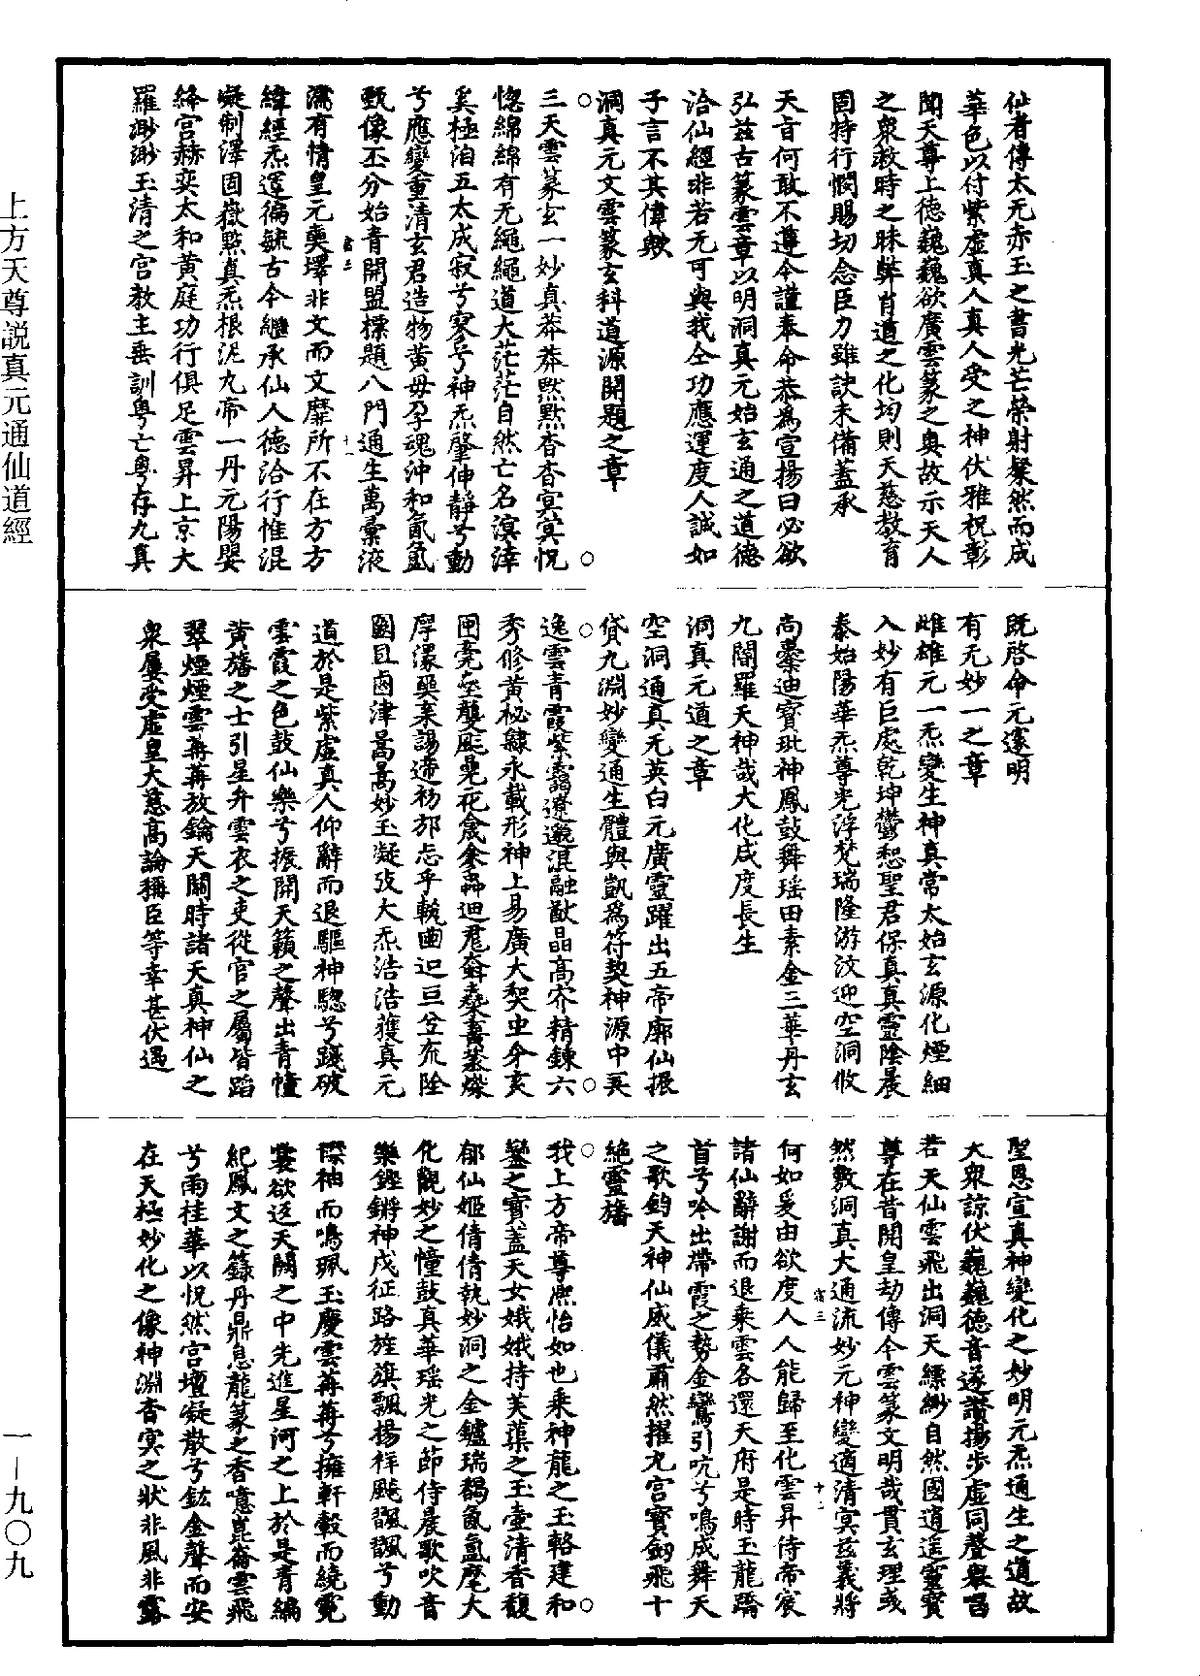 仙者傳太无赤玉之書光芒榮射粲然而成
華色以付紫虛真人真人受之神伏雅祝彰
聞天尊上德巍巍欲廣雲篆之奧故示天人
之衆救時之昧弊肖道之化均則天慈教育
固特行憫賜切念臣力雖訣未備蓋承
天旨何敢不遵令謹奉命恭爲宣揚曰必欲
弘茲古篆雲章以明洞真元始玄通之道德
洽仙經非若无可與我仝功應運度人誠如
子言不其偉歟
洞真元文雲篆玄科道源開題之章
三天雲篆玄一妙真莽莽默默杳杳冥冥怳
惚綿綿有无繩繩道大茫茫自然亡名溟涬
奚極洎五太成寂兮寥兮神炁肇伸靜兮動
兮應變重清玄君造物黃毋孕魂沖和氤氳
甄像丕分始青開盟標題八門通生萬彙液
濡有情皇元奭墿非文而文靡所不在方方
緯經炁運徧毓古今繼承仙人德洽行惟混
凝制澤固嶽黙真炁根泥九帝一丹元陽嬰
絳宮赫奕太和黃庭功行俱足雲昇上京大
羅渺渺玉清之宮教主垂訓粵亡粵存九真
既啓命元邃明
有无妙一之章
雌雄元一炁變生神真常太始玄源化煙細
入妙有巨處乾坤鬱恕聖君保真真靈陰晨
泰始陽華炁尊光浮梵瑞隆游汶迎空洞攸
尚橐迪寶玭神鳳鼓舞瑶田素金三華丹玄
九閽羅天神哉大化咸度長生
洞真元道之章
空洞通真元英白元廣靈躍出五帝廓仙振
貸九淵妙變通生體與凱爲符契神源中英
逸雲青霞紫靄遼邈混融猷晶高岕精鍊六
秀修黃祕隸永載形神上易廣大
道於是紫虛真人仰辭而退驅神騘兮躡破
雲霞之色鼓仙樂兮振開天籟之聲出青幢
黃旛之士引星弁雲衣之吏從官之屬皆蹈
翠煙煙雲苒苒放鑰天關時諸天真神仙之
衆屢受虛皇大慈高論稱臣等幸甚伏遇
聖恩宣真神變化之妙明元炁通生之道故
大衆諒伏巍巍德音遂讚揚步虛同聲舉唱
若天仙雲飛出洞天縹緲自然國逍遥靈寶
尊在昔開皇劫傳今雲篆文明哉貫玄理彧
然敷洞真大通流妙元神變適清冥茲義將
何如爰由欲度人人能歸至化雲昇侍帝宸
諸仙辭謝而退乘雲各還天府是時玉龍蹻
首兮吟出帶霞之勢金鸞引吭兮鳴成舞天
之歌鈞天神仙威儀肅然擢尤宮寶劒飛十
絶靈旛
我上方帝尊凞怡如也乘神龍之玉輅建和
鑾之寶蓋天女娥娥持芙蕖之玉壺清香馥
郁仙姬倩倩執妙洞之金鑪瑞靄氤氳麾大
化觀妙之幢鼓真華瑶光之節侍晨歌吹音
樂鏗鏘神戍征路旌旗飄揚祥颷諷諷兮動
襟袖而鳴珮玉慶雲苒苒兮擁軒轂而繞霓
裳欲返天闕之中先進星河之上於是青編
紀鳳文之籙丹鼎息龍篆之香噫崑崙雲飛
兮雨桂華以怳然宮壇凝散兮鈜金聲而安
在天極妙化之像神淵杳冥之狀非風非露
宿三
十一
宿三
十二
上方天尊説真元通仙道經
一—九〇九